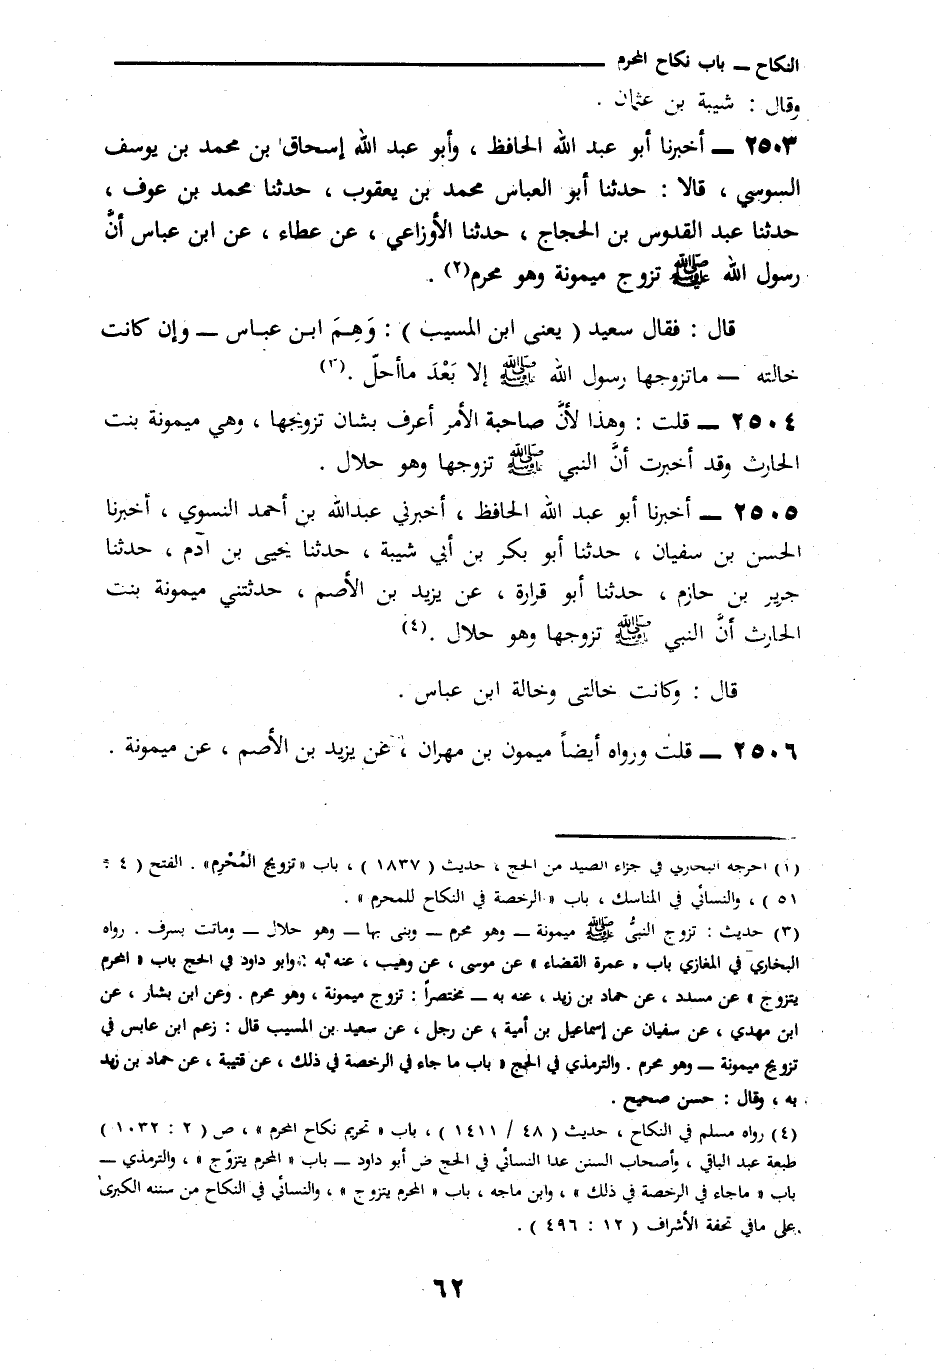 النكاح ــ باب نكاح المحرم
وقال : شيبة بن عثمان .
٢٥٠٣ ــ أخبرنا أبو عبد الله الحافظ ، وأبو عبد الله إسحاق بن محمد بن يوسف
السوسي ، قالا : حدثنا أبو العباس محمد بن يعقوب ، حدثنا محمد بن عوف ،
حدثنا عبد القدوس بن الحجاج ، حدثنا الأوزاعي ، عن عطاء ، عن ابن عباس أنَّ
رسول الله ﷺ تزوج ميمونة وهو محرم(٢) .
قال : فقال سعيد ( يعنى ابن المسيب ) : وَهِمَ ابن عباس ــ وإن كانت
خالته ــ ماتزوجها رسول الله ﷺ إلا بَعْدَ ماأحلّ .(٣)
٢٥٠٤ ــ قلت : وهذا لأنَّ صاحبة الأمر أعرف بشان تزويجها ، وهي ميمونة بنت
الحارث وقد أخبرت أنَّ النبي ﷺ تزوجها وهو حلال .
٢٥٠٥ ــ أخبرنا أبو عبد الله الحافظ ، أخبرني عبدالله بن أحمد النسوي ، أخبرنا
الحسن بن سفيان ، حدثنا أبو بكر بن أبي شيبة ، حدثنا يحيى بن آدم ، حدثنا
جرير بن حازم ، حدثنا أبو قرارة ، عن يزيد بن الأصم ، حدثتني ميمونة بنت
الحارث أنَّ النبي ﷺ تزوجها وهو حلال .(٤)
قال : وكانت خالتى وخالة ابن عباس .
٢٥٠٦ ــ قلت ورواه أيضاً ميمون بن مهران ، عن يزيد بن الأصم ، عن ميمونة .
(١) اخرجه البخاري في جزاء الصيد من الحج ، حديث ( ١٨٣٧ ) ، باب «تزويج المُحْرِم» . الفتح ( ٤ :
٥١ ) ، والنسائي في المناسك ، باب « الرخصة في النكاح للمحرم » .
(٣) حديث : تزوج النبىُّ ﷺ ميمونة ــ وهو محرم ــ وبنى بها ــ وهو حلال ــ وماتت بسرف . رواه
البخاري في المغازي باب « عمرة القضاء » عن موسى ، عن وهيب ، عنه به : وابو داود في الحج باب « المحرم
يتزوج » عن مسدد ، عن حماد بن زيد ، عنه به ــ مختصراً : تزوج ميمونة ، وهو محرم . وعن ابن بشار ، عن
ابن مهدي ، عن سفيان عن إسماعيل بن أمية ، عن رجل ، عن سعيد بن المسيب قال : زعم ابن عابس في
تزويج ميمونة ــ وهو محرم . والترمذي في الحج « باب ما جاء في الرخصة في ذلك ، عن قتيبة ، عن حماد بن زيد
به ، وقال : حسن صحيح .
(٤) رواه مسلم في النكاح ، حديث ( ٤٨ / ١٤١١ ) ، باب « تحريم نكاح المحرم » ، ص ( ٢ : ١٠٣٢ )
طبعة عبد الباقي ، وأصحاب السنن عدا النسائي في الحج ض أبو داود ــ باب « المحرم يتزوّج » ، والترمذي ــ
باب « ماجاء في الرخصة في ذلك » ، وابن ماجه ، باب « المحرم يتزوج » ، والنسائي في النكاح من سننه الكبرى
على مافي تحفة الأشراف ( ١٢ : ٤٩٦ ) .
٦٢